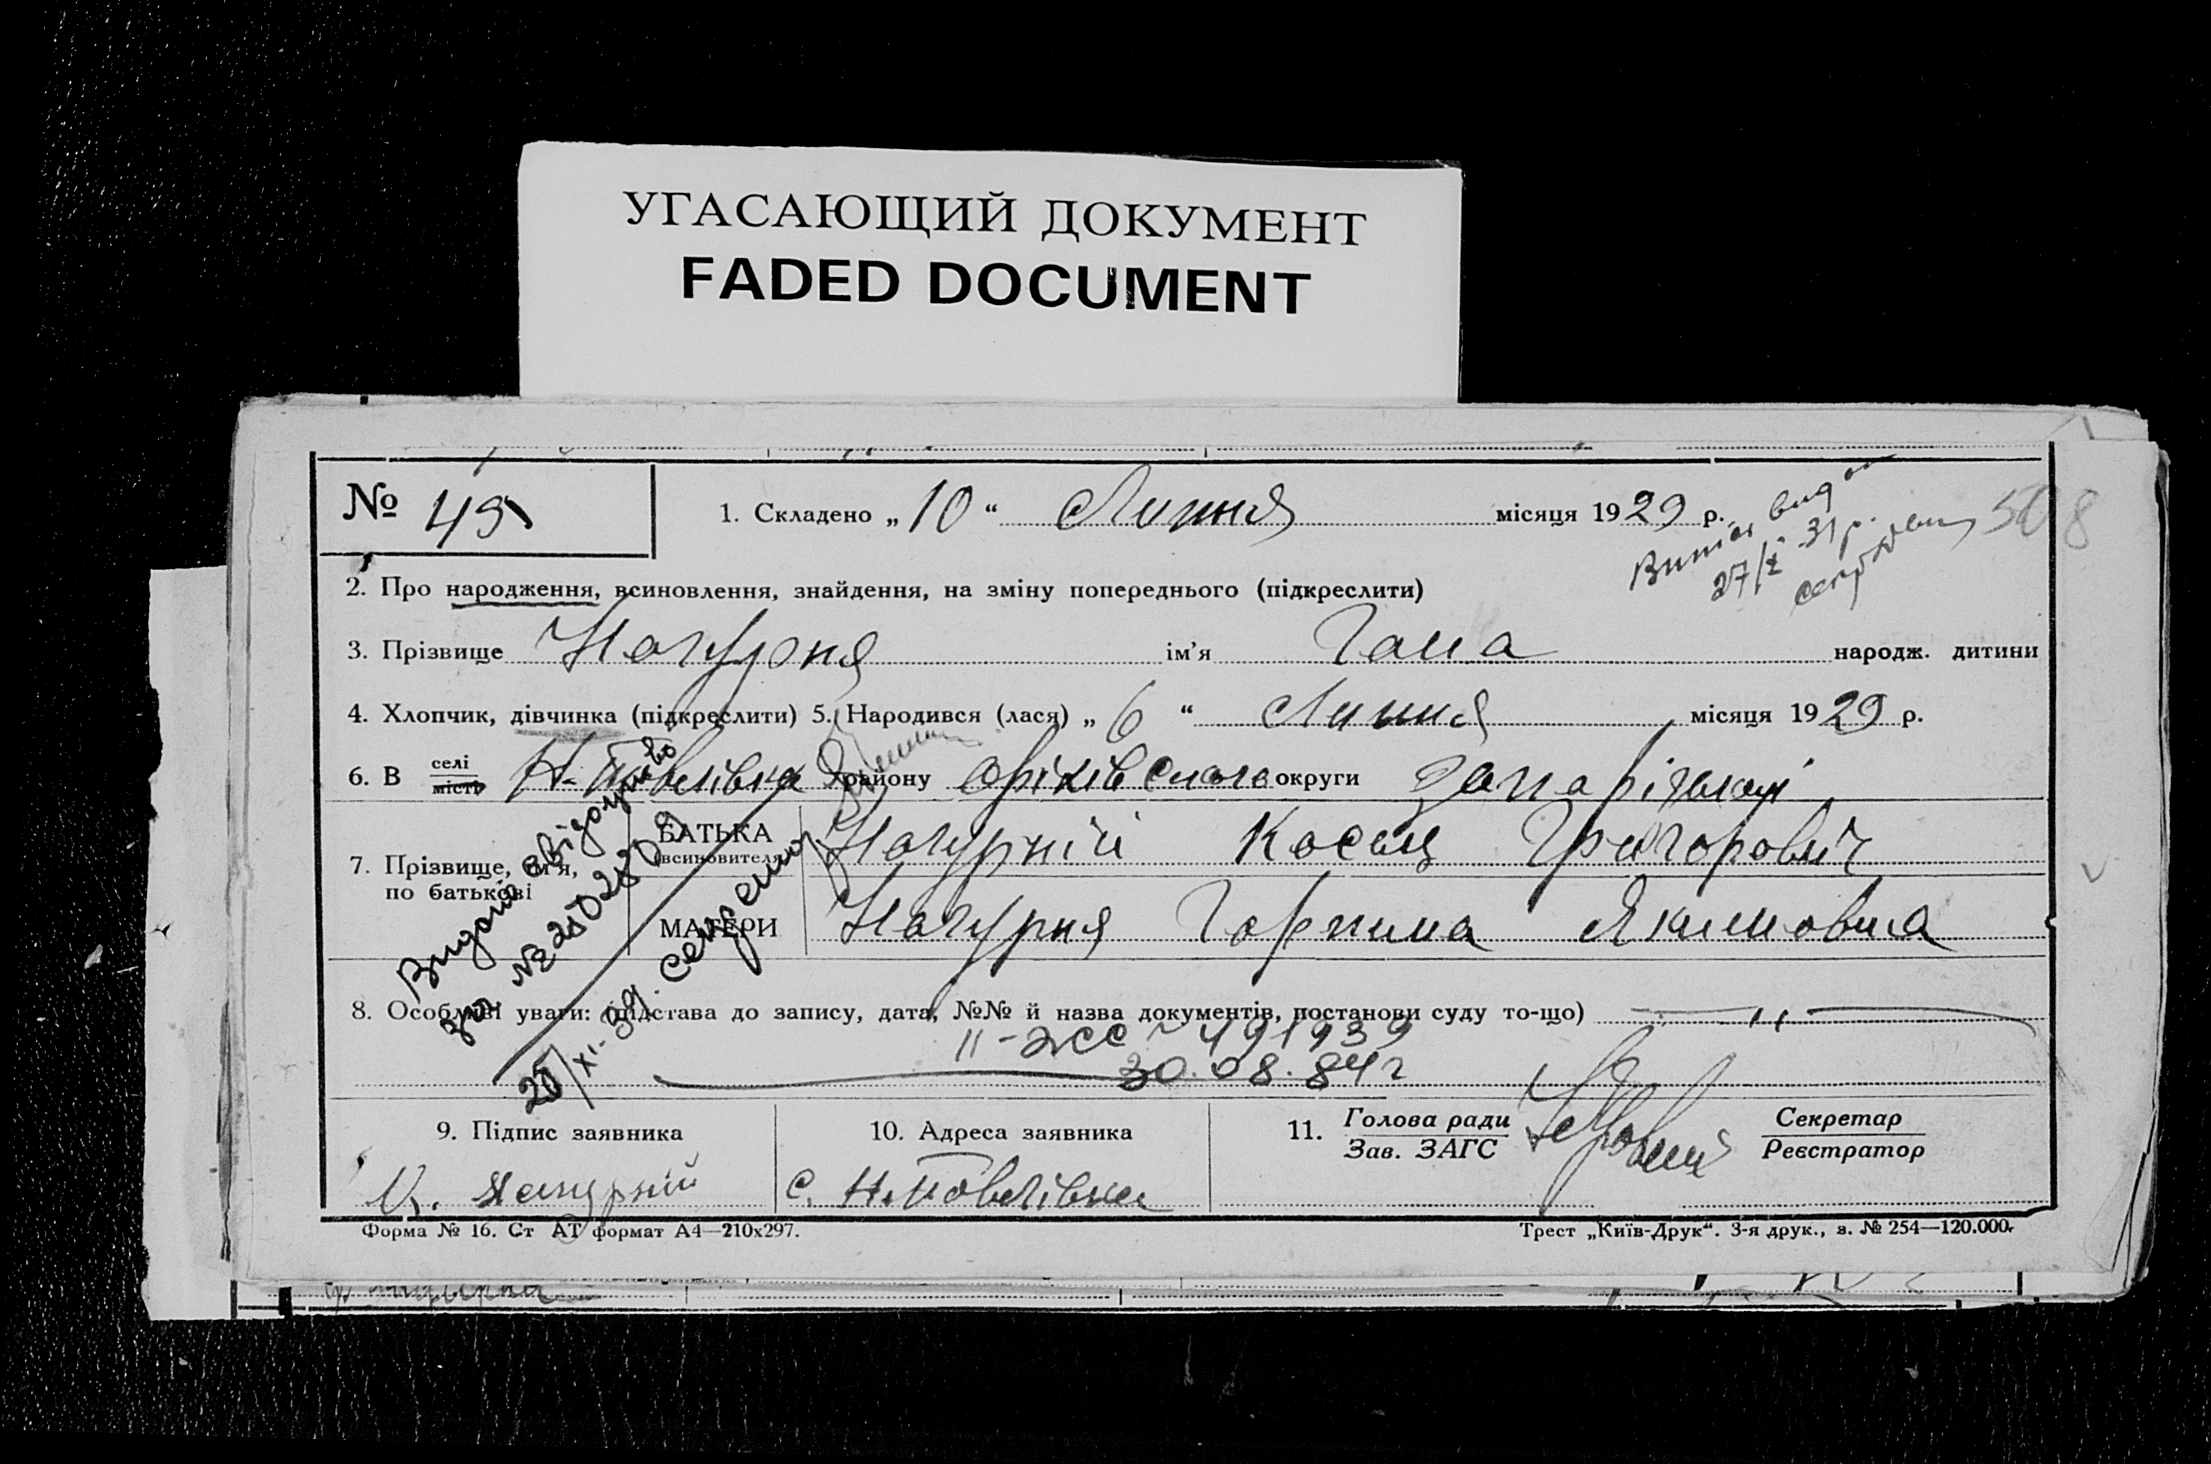 УГАСАЮЩИЙ ДОКУМЕНТ
FADED DOCUMENT
№ 49
1. Складено „ 10 “ Липня місяця 1929 р.
Витяг видан
27/X 31 р.
508
2. Про народження, всиновлення, знайдення, на зміну попереднього (підкреслити)
3. Прізвище Нагурня ім’я Гана народж. дитини
4. Хлопчик, дівчинка (підкреслити) 5. Народився (лася) „ 6 “ Липня місяця 1929 р.
6. В селі місті Н-Павлівка району Оріхівського округи Запорізької
7. Прізвище, ім’я, по батькові
БАТЬКА (всиновителя) Нагурній Григорович
МАТЕРИ Нагурня Горпина Якимовна
8. Особливі уваги: (підстава до запису, дата, №№ й назва документів, постанови суду то-що) — „ —
II-ЖС № 491939
30.08.84 г
Видано свідоцтво
за № 250280
25/XI-39.
9. Підпис заявника
Нагурній
10. Адреса заявника
с. Н-Павлівка
11. Голова ради
Зав. ЗАГС
Секретар
Реєстратор
Форма № 16. Ст АТ формат А4—210х297.
Трест „Київ-Друк“. 3-я друк., з. № 254—120.000.